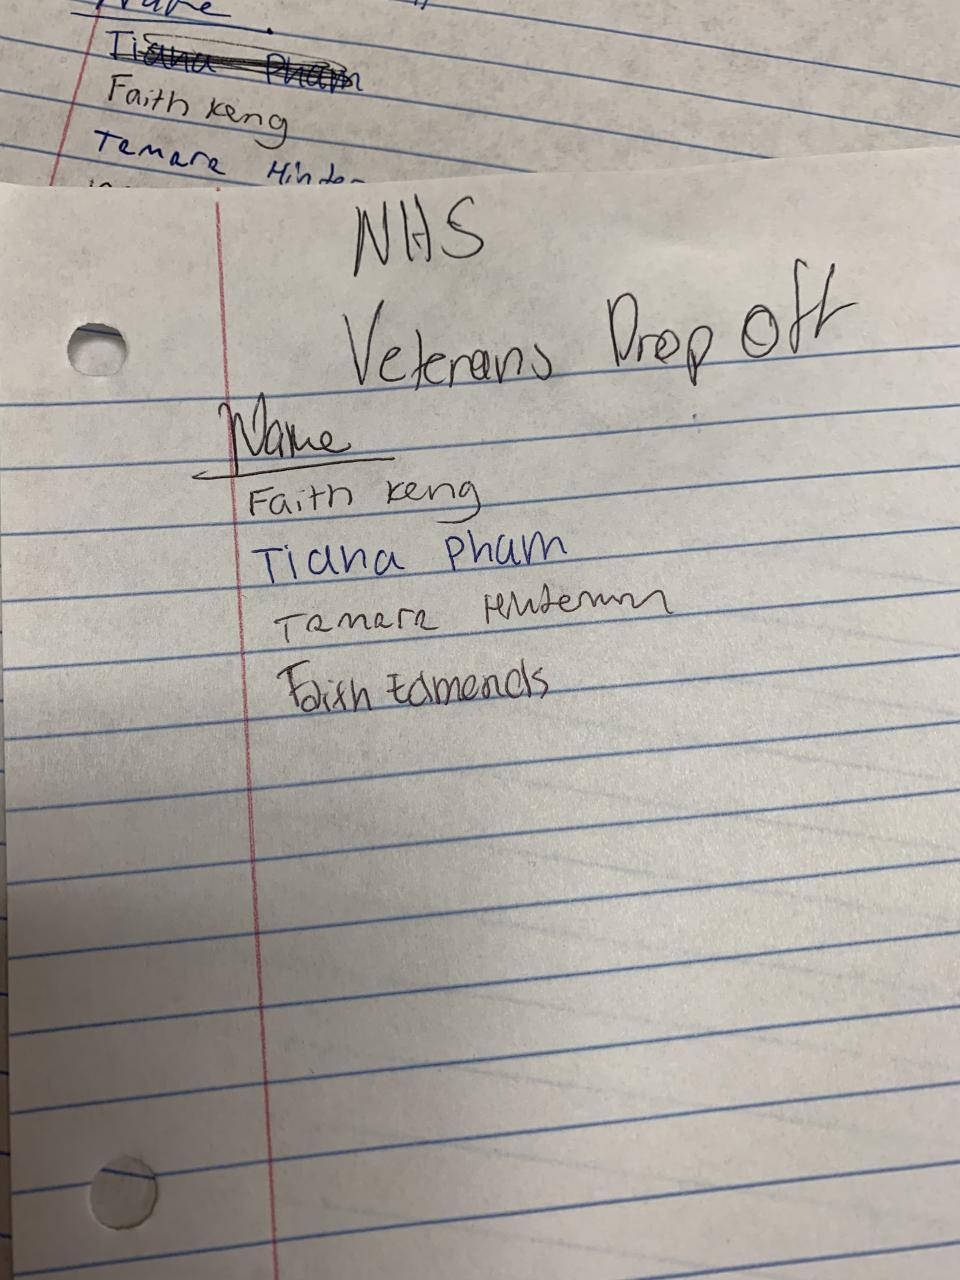 Name
Tiana Pham
Faith Keng
Tamara
NHS
Veterans Drop Off
Name
Faith Keng
Tiana Pham
Tamara
Faith Edmonds